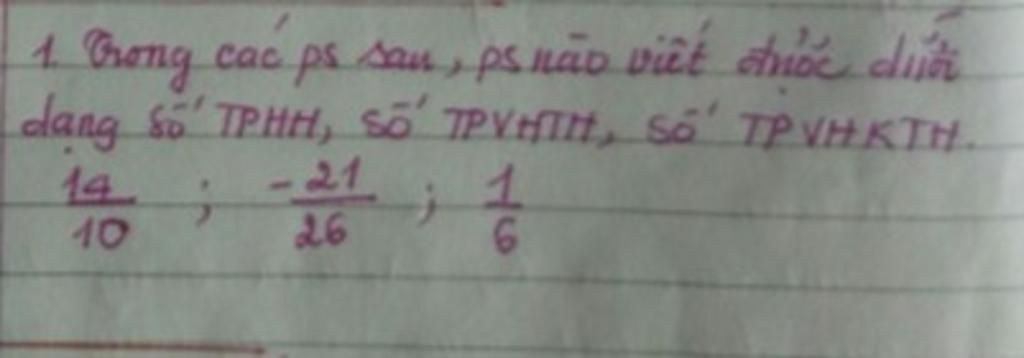 1. Trong các ps sau, ps nào viết được dưới
dạng số TPHH, số TPVHTH, số TPVHKTH.
14/10 ; -21/26 ; 1/6